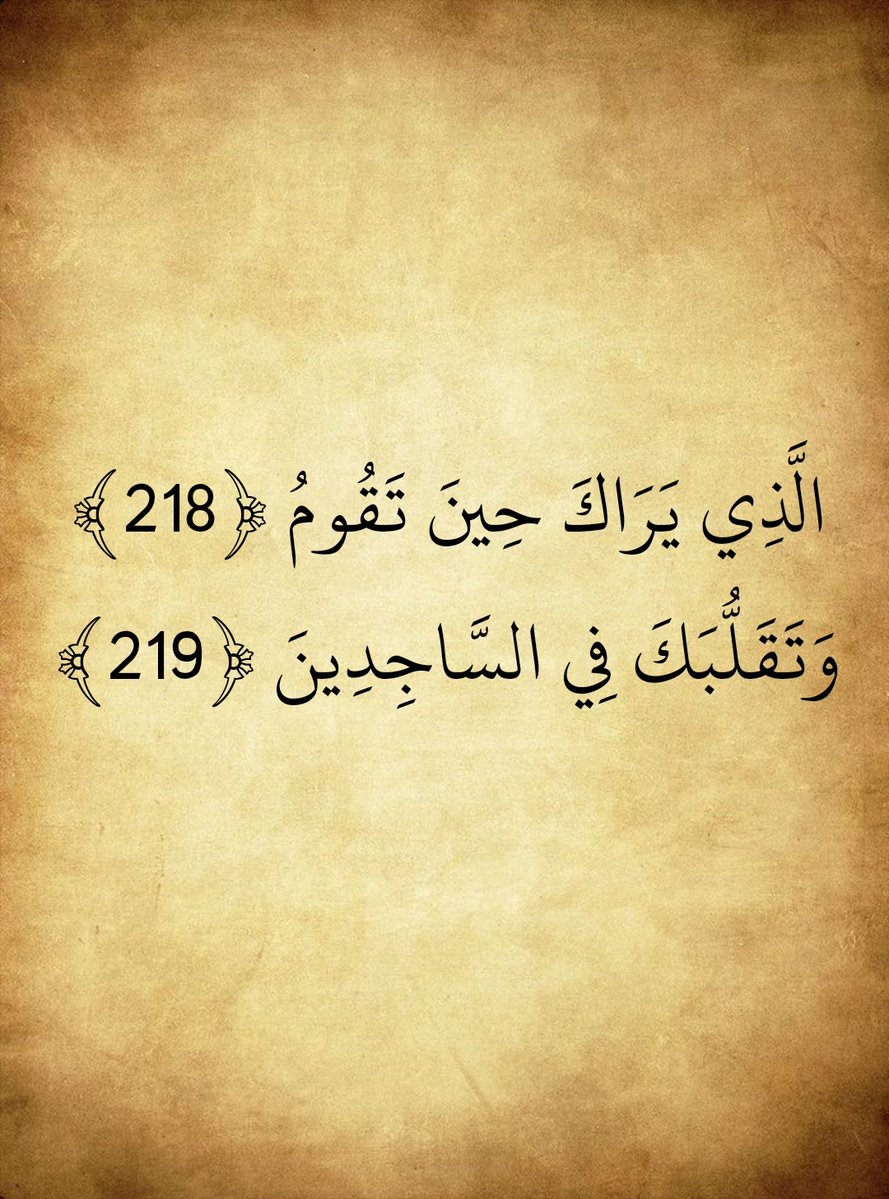 الَّذِي يَرَاكَ حِينَ تَقُومُ ﴿218﴾
وَتَقَلُّبَكَ فِي السَّاجِدِينَ ﴿219﴾